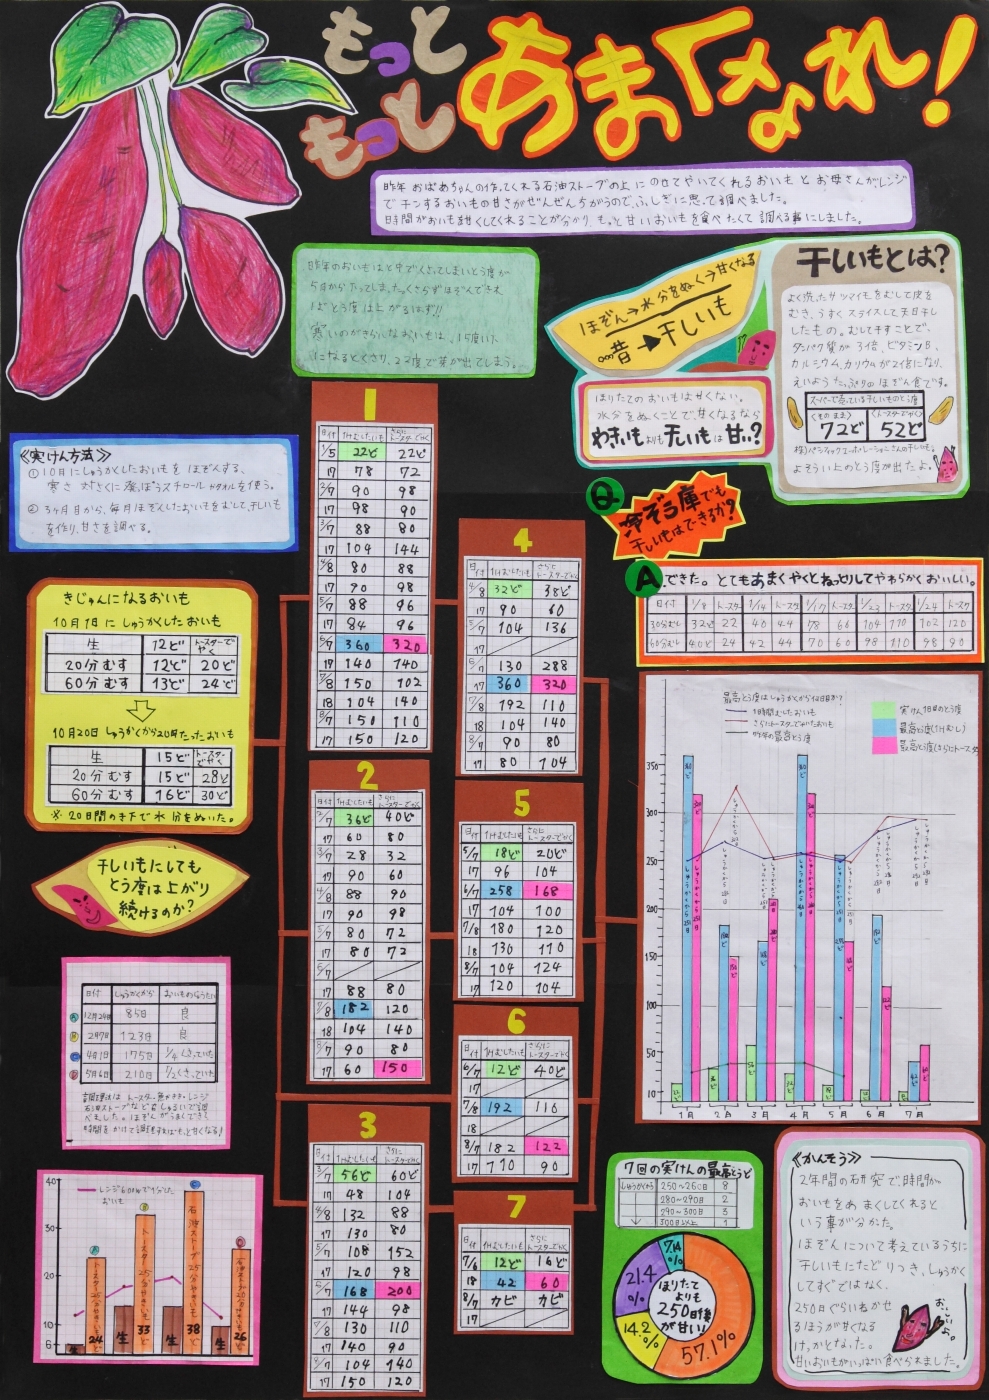 もっと
もっと
あまくなれ!
昨年おばあちゃんの作ってくれる石油ストーブの上にのせてやいてくれるおいもとお母さんがレンジ
でチンするおいもの甘さがぜんぜんちがうので、ふしぎに思って調べました。
時間がおいもを甘くしてくれることが分かり、もっと甘いおいもを食べたくて調べる事にしました。
昨年のおいもは
5月から
寒いのがきらいなおいもは、15度い下
になるとくさり、22度で芽が出てしまう。
ほぞん→水分をぬく→甘くなる
昔→干しいも
ほりたてのおいもは甘くない。
水分をぬくことで甘くなるなら
わかいもよりも元いもは甘い?
干しいもとは?
よく洗ったサツマイモをむして皮を
むき、うすくスライスして天日干し
したもの。むして干すことで、
タンパク質が3倍、ビタミンB、
カルシウム、カリウムが2倍になり、
えいようたっぷりのほぞん食です。
スーパーで売っている干しいものとう度
<そのまま> <トースターでやく>
72ど 52ど
よそう以上のとう度が出たよ。
Q
冷ぞう庫でも
干しいもはできるか?
A
できた。とてもあまくやくとねっとりしてやわらかくおいしい。
日付 1/8 トースター 1/14 トースター 1/17 トースター 1/23 トースター 1/24 トースター
30分むす 32ど 22 40 44 78 66 104 110 102 120
60分むす 40ど 24 44 44 70 60 98 110 98 90
≪実けん方法≫
①10月にしゅうかくしたおいもをほぞんする。
寒さ対さくに発ぽうスチロールやタオルを使う。
②3ヶ月目から、毎月ほぞんしたおいもをむして、干しいも
を作り、甘さを調べる。
きじゅんになるおいも
10月1日にしゅうかくしたおいも
生 12ど トースターでやく
20分むす 12ど 20ど
60分むす 13ど 24ど
10月20日 しゅうかくから20日たったおいも
生 15ど トースターでやく
20分むす 15ど 28ど
60分むす 16ど 30ど
※20日間のき下で水分をぬいた。
干しいもにしても
とう度は上がり
続けるのか?
日付 しゅうかくから おいものようたい
A 12月24日 85日 良
B 2月7日 123日 良
C 4月1日 175日 1/4くさっていた
D 5月6日 210日 1/2くさっていた
40
30
20
10
6
レンジ600Wで9分した
おいも
A
B
C
D
生
24
生
33
生
38
生
26
1
日付 1Hむしたいも さらにトースターでやく
1/5 22ど 22ど
17 78 72
2/7 90 98
17 98 90
3/7 88 80
17 104 144
4/8 80 88
17 90 98
5/7 88 96
17 84 96
6/7 360 320
17 140 140
7/8 150 102
18 104 140
8/7 150 110
17 150 120
2
日付 1Hむしたいも さらにトースターでやく
2/7 36ど 40ど
17 60 80
3/7 28 32
17 90 60
4/8 88 90
17 90 98
5/7 80 72
17 80 72
6/7
17 88 80
7/8 182 120
18 104 140
8/7 90 80
17 60 150
3
日付 1Hむしたいも さらにトースターでやく
3/7 56ど 60ど
17 48 104
4/8 132 88
17 130 80
5/7 108 152
17 120 98
6/7 168 200
17 144 98
7/8 130 110
17 140 90
8/7 104 140
17 150 120
4
日付 1Hむしたいも さらにトースターでやく
4/8 32ど 38ど
17 90 60
5/7 104 136
17
6/7 130 288
17 360 320
7/8 192 110
18 104 140
8/7 90 80
17 80 104
5
日付 1Hむしたいも さらにトースターでやく
5/7 18ど 20ど
17 96 104
6/7 258 168
17 104 100
7/8 180 120
18 130 110
8/7 104 124
17 120 104
6
日付 1Hむしたいも さらにトースターでやく
6/7 12ど 40ど
17
7/8 192 110
18
8/7 182 122
17 110 90
7
日付 1Hむしたいも さらにトースターでやく
7/8 12ど 16ど
18 42 60
8/7 カビ カビ
17
最高とう度はしゅうかくから何日目か?
1時間むしたおいも
さらにトースターでやいたおいも
昨年の最高とう度
実けん1日目のとう度
最高とう度(1Hむし)
最高とう度(さらにトースター)
350
300
250
200
150
100
50
10
1月 2月 3月 4月 5月 6月 7月
7回の実けんの最高とうど
しゅうかくから 250~260日 8
280~290日 2
290~300日 3
300日以上 1
7.14%
21.4%
14.2%
57.1%
ほりたて
よりも
250日後
が甘い!
≪かんそう≫
2年間の研究で時間が
おいもをあまくしてくれると
いう事が分かった。
ほぞんについて考えているうちに
干しいもにたどりつき、しゅうかく
してすぐではなく、
250日ぐらいねかせ
るほうが甘くなる
けっかとなった。
甘いおいもがいっぱい食べられました。
おいしいよ。